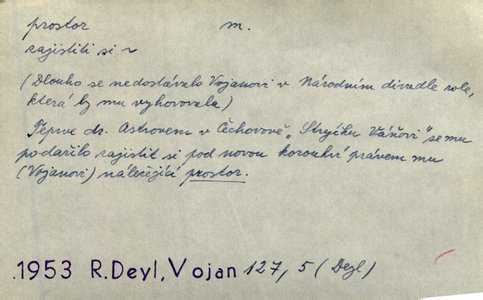 prostor m.
zajistiti si ~
(Dlouho se nedostávalo Vojanovi v Národním divadle role,
která by mu vyhovovala)
Teprve dr. Astrovem v Čechovově „Strýčku Váňovi" se mu
podařilo zajistit si pod novou korouhví právem mu
(Vojanovi) náležející prostor.
1953 R. Deyl, Vojan 127, 5 (Deyl)